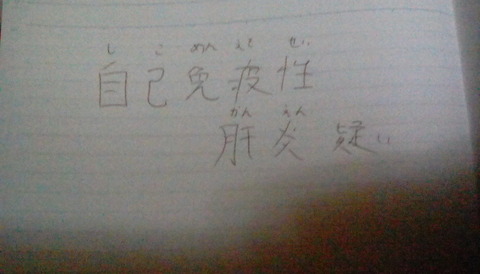 じこめんえきせい
自己免疫性
かんえん
肝炎 疑い